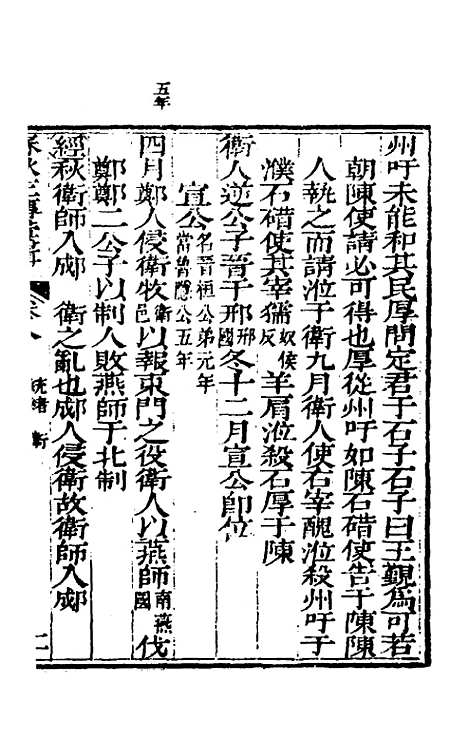 州吁未能和其民厚問定君于石子石子曰王覲爲可若
朝陳使請必可得也厚從州吁如陳石碏使告于陳陳
人執之而請涖于衛九月衛人使右宰醜涖殺州吁于
濮石碏使其宰獳奴侯反羊肩涖殺石厚于陳
衛人逆公子晉于邢邢國冬十二月宣公卽位
宣公名晉桓公弟元年當魯隱公五年
五年
四月鄭人侵衛牧衛邑以報東門之役衛人以燕師南燕國伐
鄭鄭二公子以制人敗燕師于北制
經秋衛師入郕 衛之亂也郕人侵衛故衛師入郕
卷八 衛 二